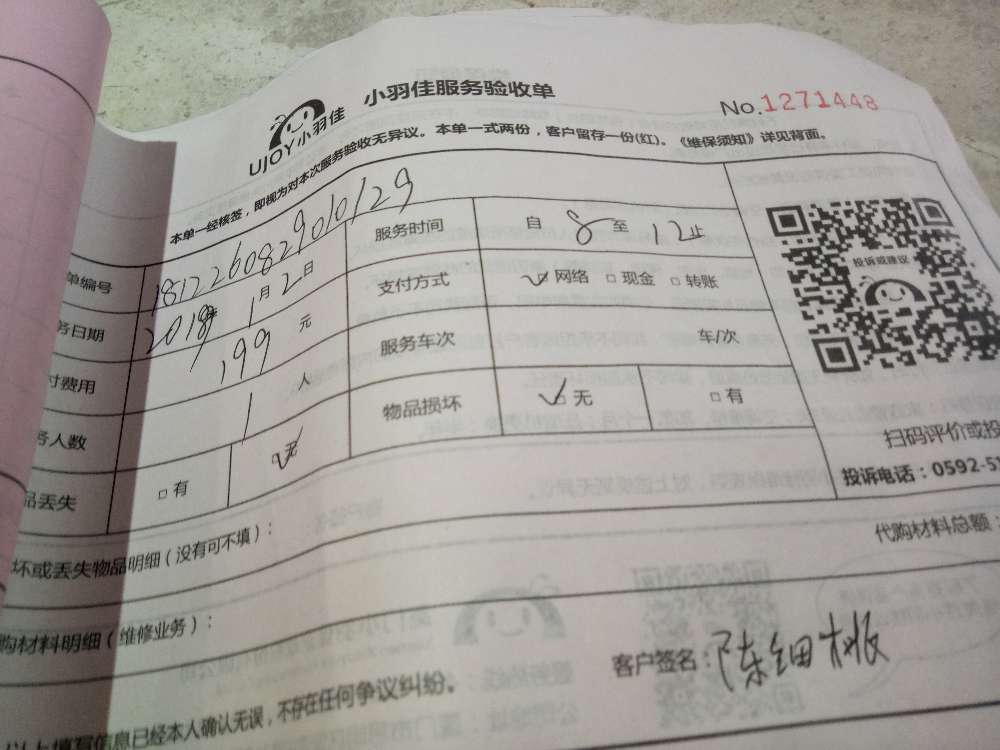 小羽佳服务验收单
UJOY小羽佳
No.1271448
本单一经核签，即视为对本次服务验收无异议。本单一式两份，客户留存一份(红)。《维保须知》详见背面。
单编号 服务时间 自8至12止
务日期 2019年1月2日 支付方式 网络 现金 转账
付费用 199元 服务车次 车/次
务人数 1人 物品损坏 无 有
品丢失 有 无
投诉或建议
扫码评价或投
投诉电话：0592-51
坏或丢失物品明细（没有可不填）：
代购材料总额：
购材料明细（维修业务）：
客户签名：陈细板
以上填写信息已经本人确认无误，不存在任何争议纠纷。